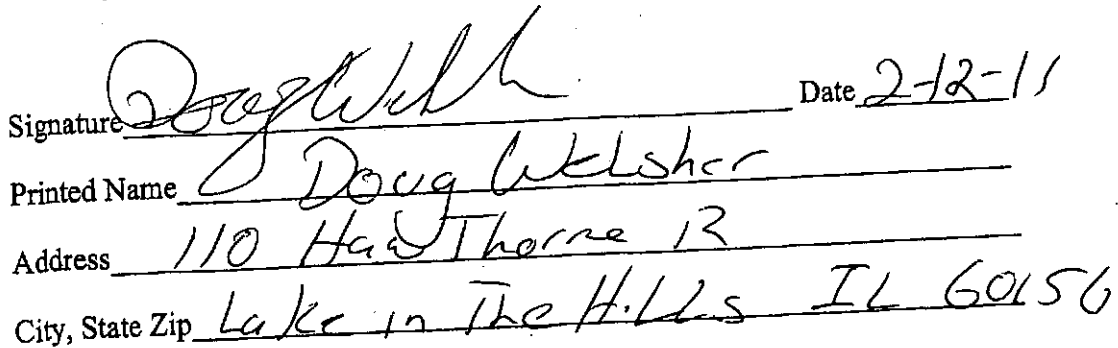 Signature Doug Date 2-12-11
Printed Name Doug Welsher
Address 110 HawThorne R
City, State Zip Lake in The Hills IL 60156